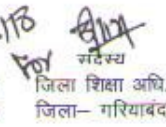 /18
For
सदस्य
जिला शिक्षा अधि.
जिला– गरियाबंद